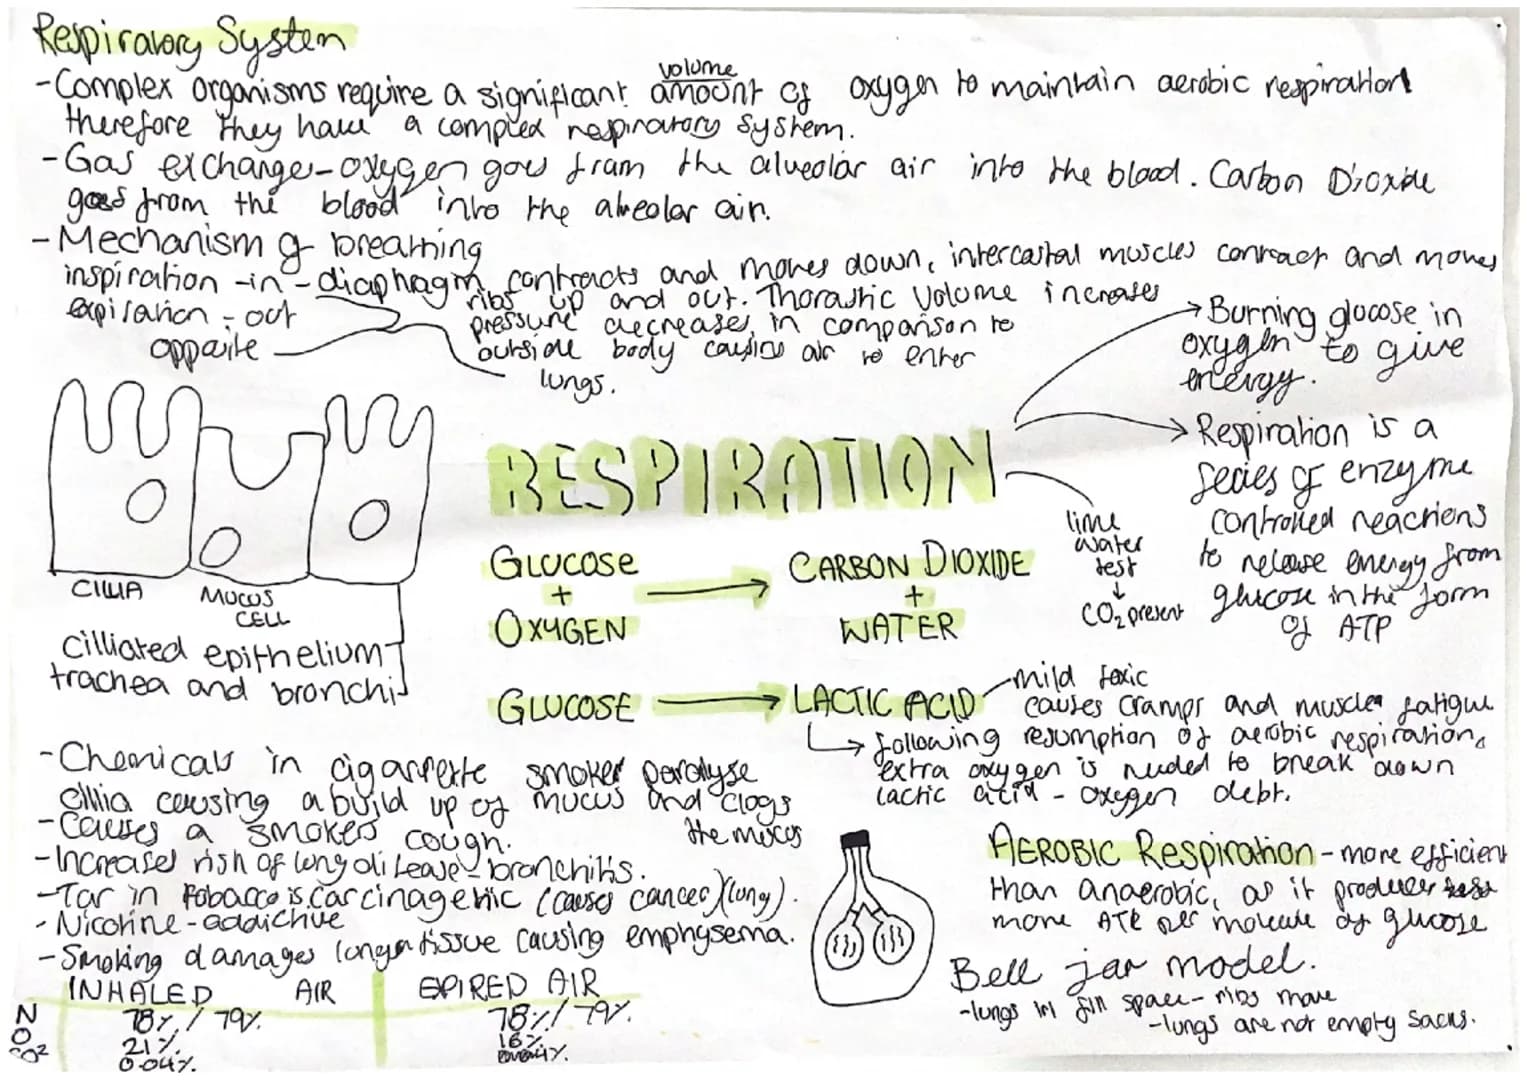 Respiratory System
-Complex organisms require a significant volume amount of oxygen to maintain aerobic respiration
therefore they have a complex respiratory system.
-Gas exchange-oxygen goes from the alveolar air into the blood. Carbon Dioxide
goes from the blood into the alveolar air.
-Mechanism of breathing
inspiration -in - diaphragm contracts and moves down, intercostal muscles contract and moves
ribs up and out. Thorastic Volume increases
expiration - out
pressure decreases in comparison to
opposite
outside body causing air to enter
lungs.
Burning glucose in
oxygen to give
energy.
RESPIRATION
Respiration is a
series of enzyme
controlled reactions
to release energy from
glucose in the form
of ATP
lime
water
test
↓
CO2 present
CILLIA
MUCUS
CELL
Cilliated epithelium
trachea and bronchi
GLUCOSE
+
OXYGEN
CARBON DIOXIDE
+
WATER
GLUCOSE
LACTIC ACID
mild toxic
causes cramps and muscle fatigue
following resumption of aerobic respiration,
extra oxygen is needed to break down
lactic acid - oxygen debt.
-Chemicals in cigarrette smoke paralyse
cillia causing a build up of mucus and clogs
the mucus
-Causes a smokers cough.
-Increases risk of lung disease-bronchitis.
-Tar in tobacco is carcinagenic (causes cancer)(lung).
-Nicotine-addictive
-Smoking damages lunge tissue causing emphysema.
INHALED AIR
EXPIRED AIR
N
78%/79%
78%/79%.
O
21%.
16%
CO2
0.04%.
AEROBIC Respiration - more efficient
than anaerobic, as it produces
more ATP per molecule of glucose
Bell jar model.
-lungs in fill space- ribs move
-lungs are not empty sacks.